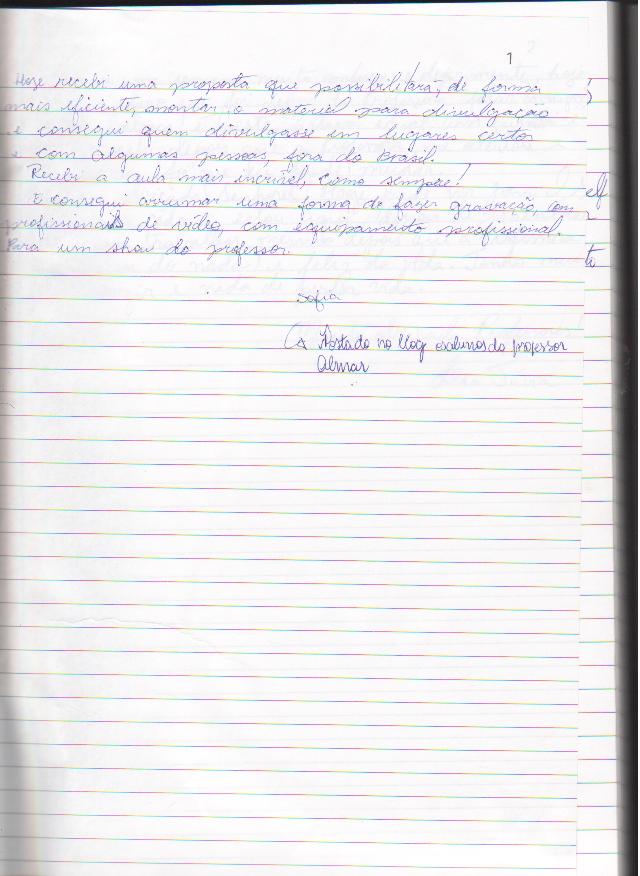 1
Hoje recebi uma proposta que possibilitará, de forma
mais eficiente, montar o material para divulgação
e consegui quem divulgasse em lugares certos
e com algumas pessoas, fora do Brasil.
Recebi a aula mais incrível, como sempre!
E consegui arrumar uma forma de fazer gravação, com
profissionais de vídeo, com equipamento profissional.
Para um show do professor.
Sofia
Postado no blog exalunos do professor
Olmar